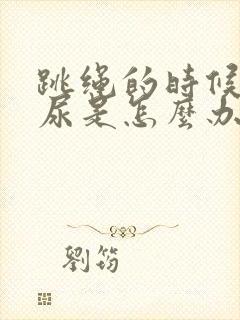 跳绳的時候
尿是怎麼办
劉筠